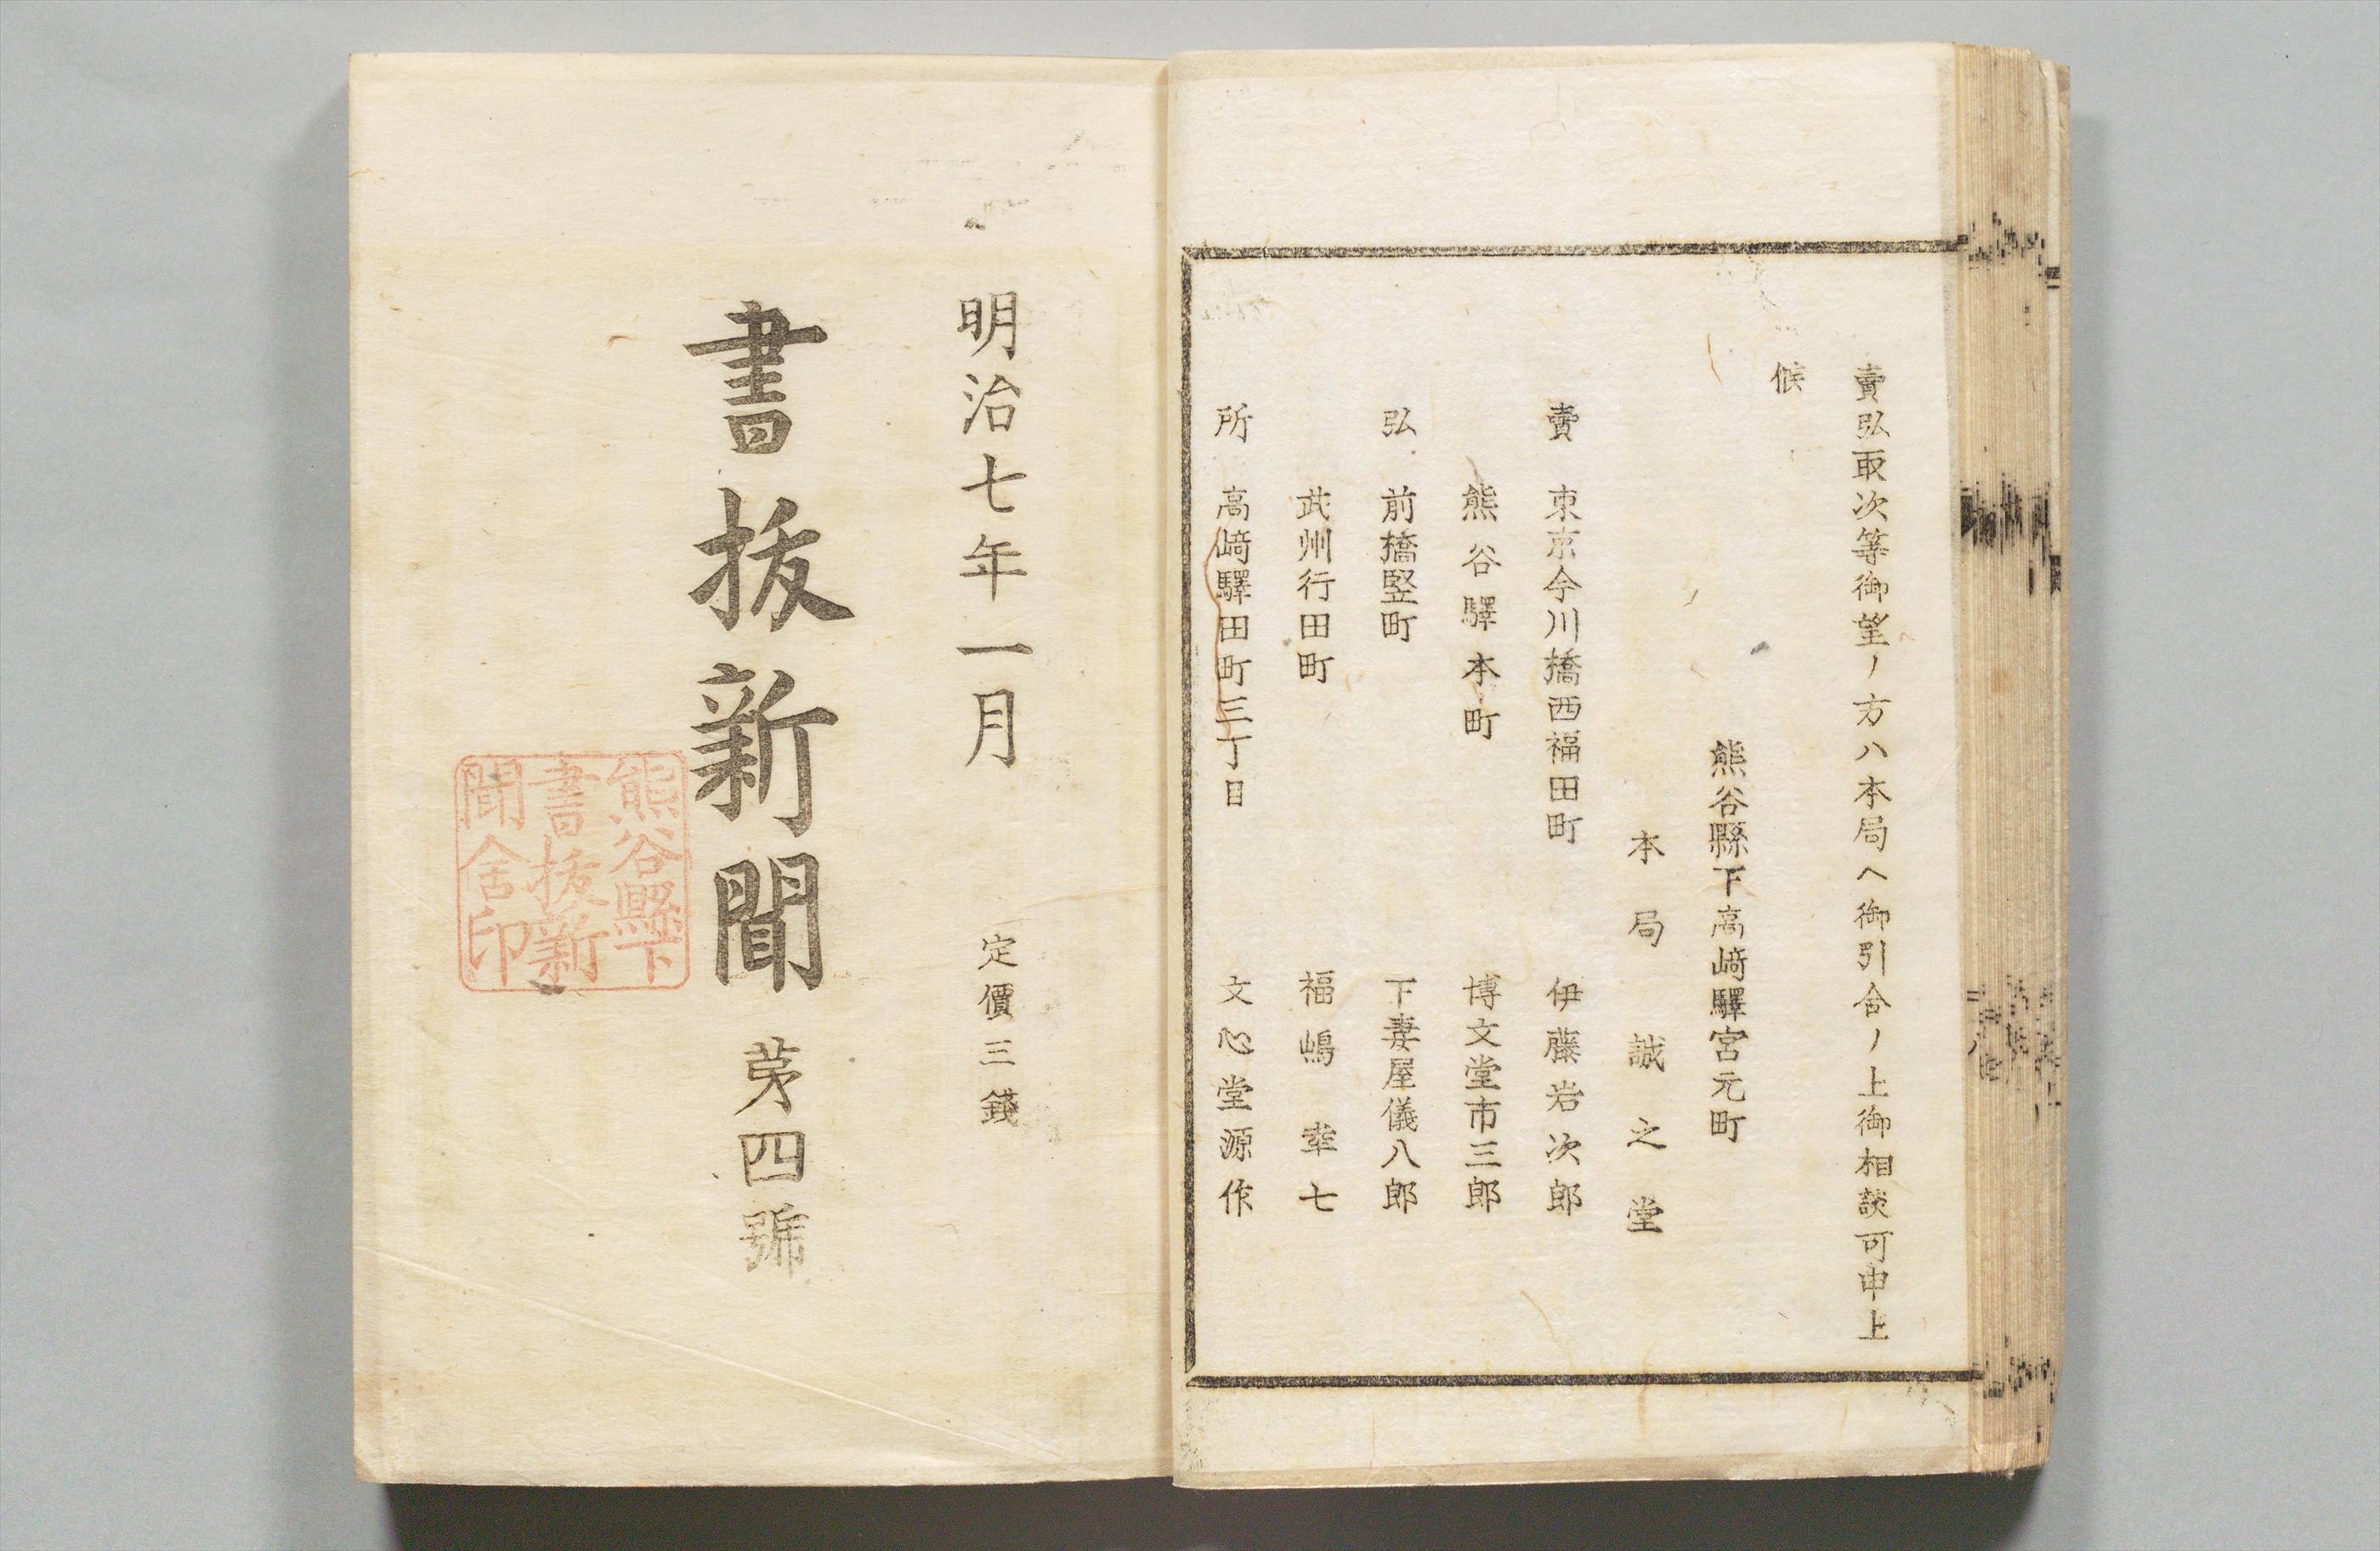 賣弘取次等御望ノ方ハ本局ヘ御引合ノ上御相談可申上
候
熊谷縣下高﨑驛宮元町
本局 誠之堂
賣 東京今川橋西福田町 伊藤岩次郎
熊谷驛本町 博文堂市三郎
弘 前橋竪町 下妻屋儀八郎
武州行田町 福嶋幸七
所 高﨑驛田町三丁目 文心堂源作
明治七年一月 定價三錢
書抜新聞 苐四號
熊谷縣下
書抜新
聞舍印